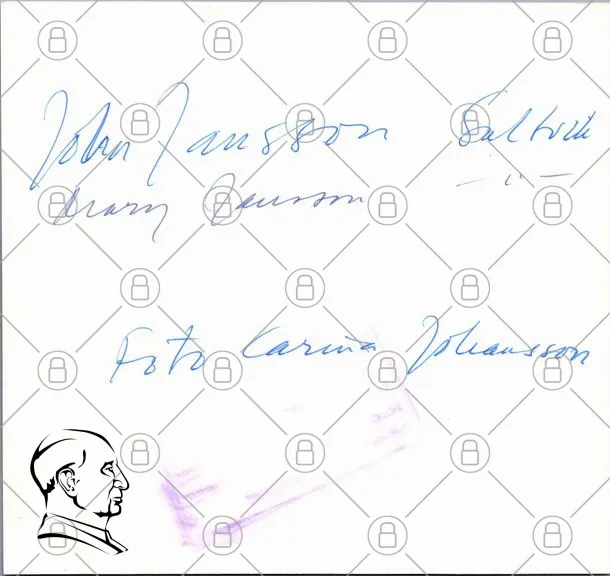 John Jansson Saltvik
Mary Jansson —"—
Foto Carina Johansson